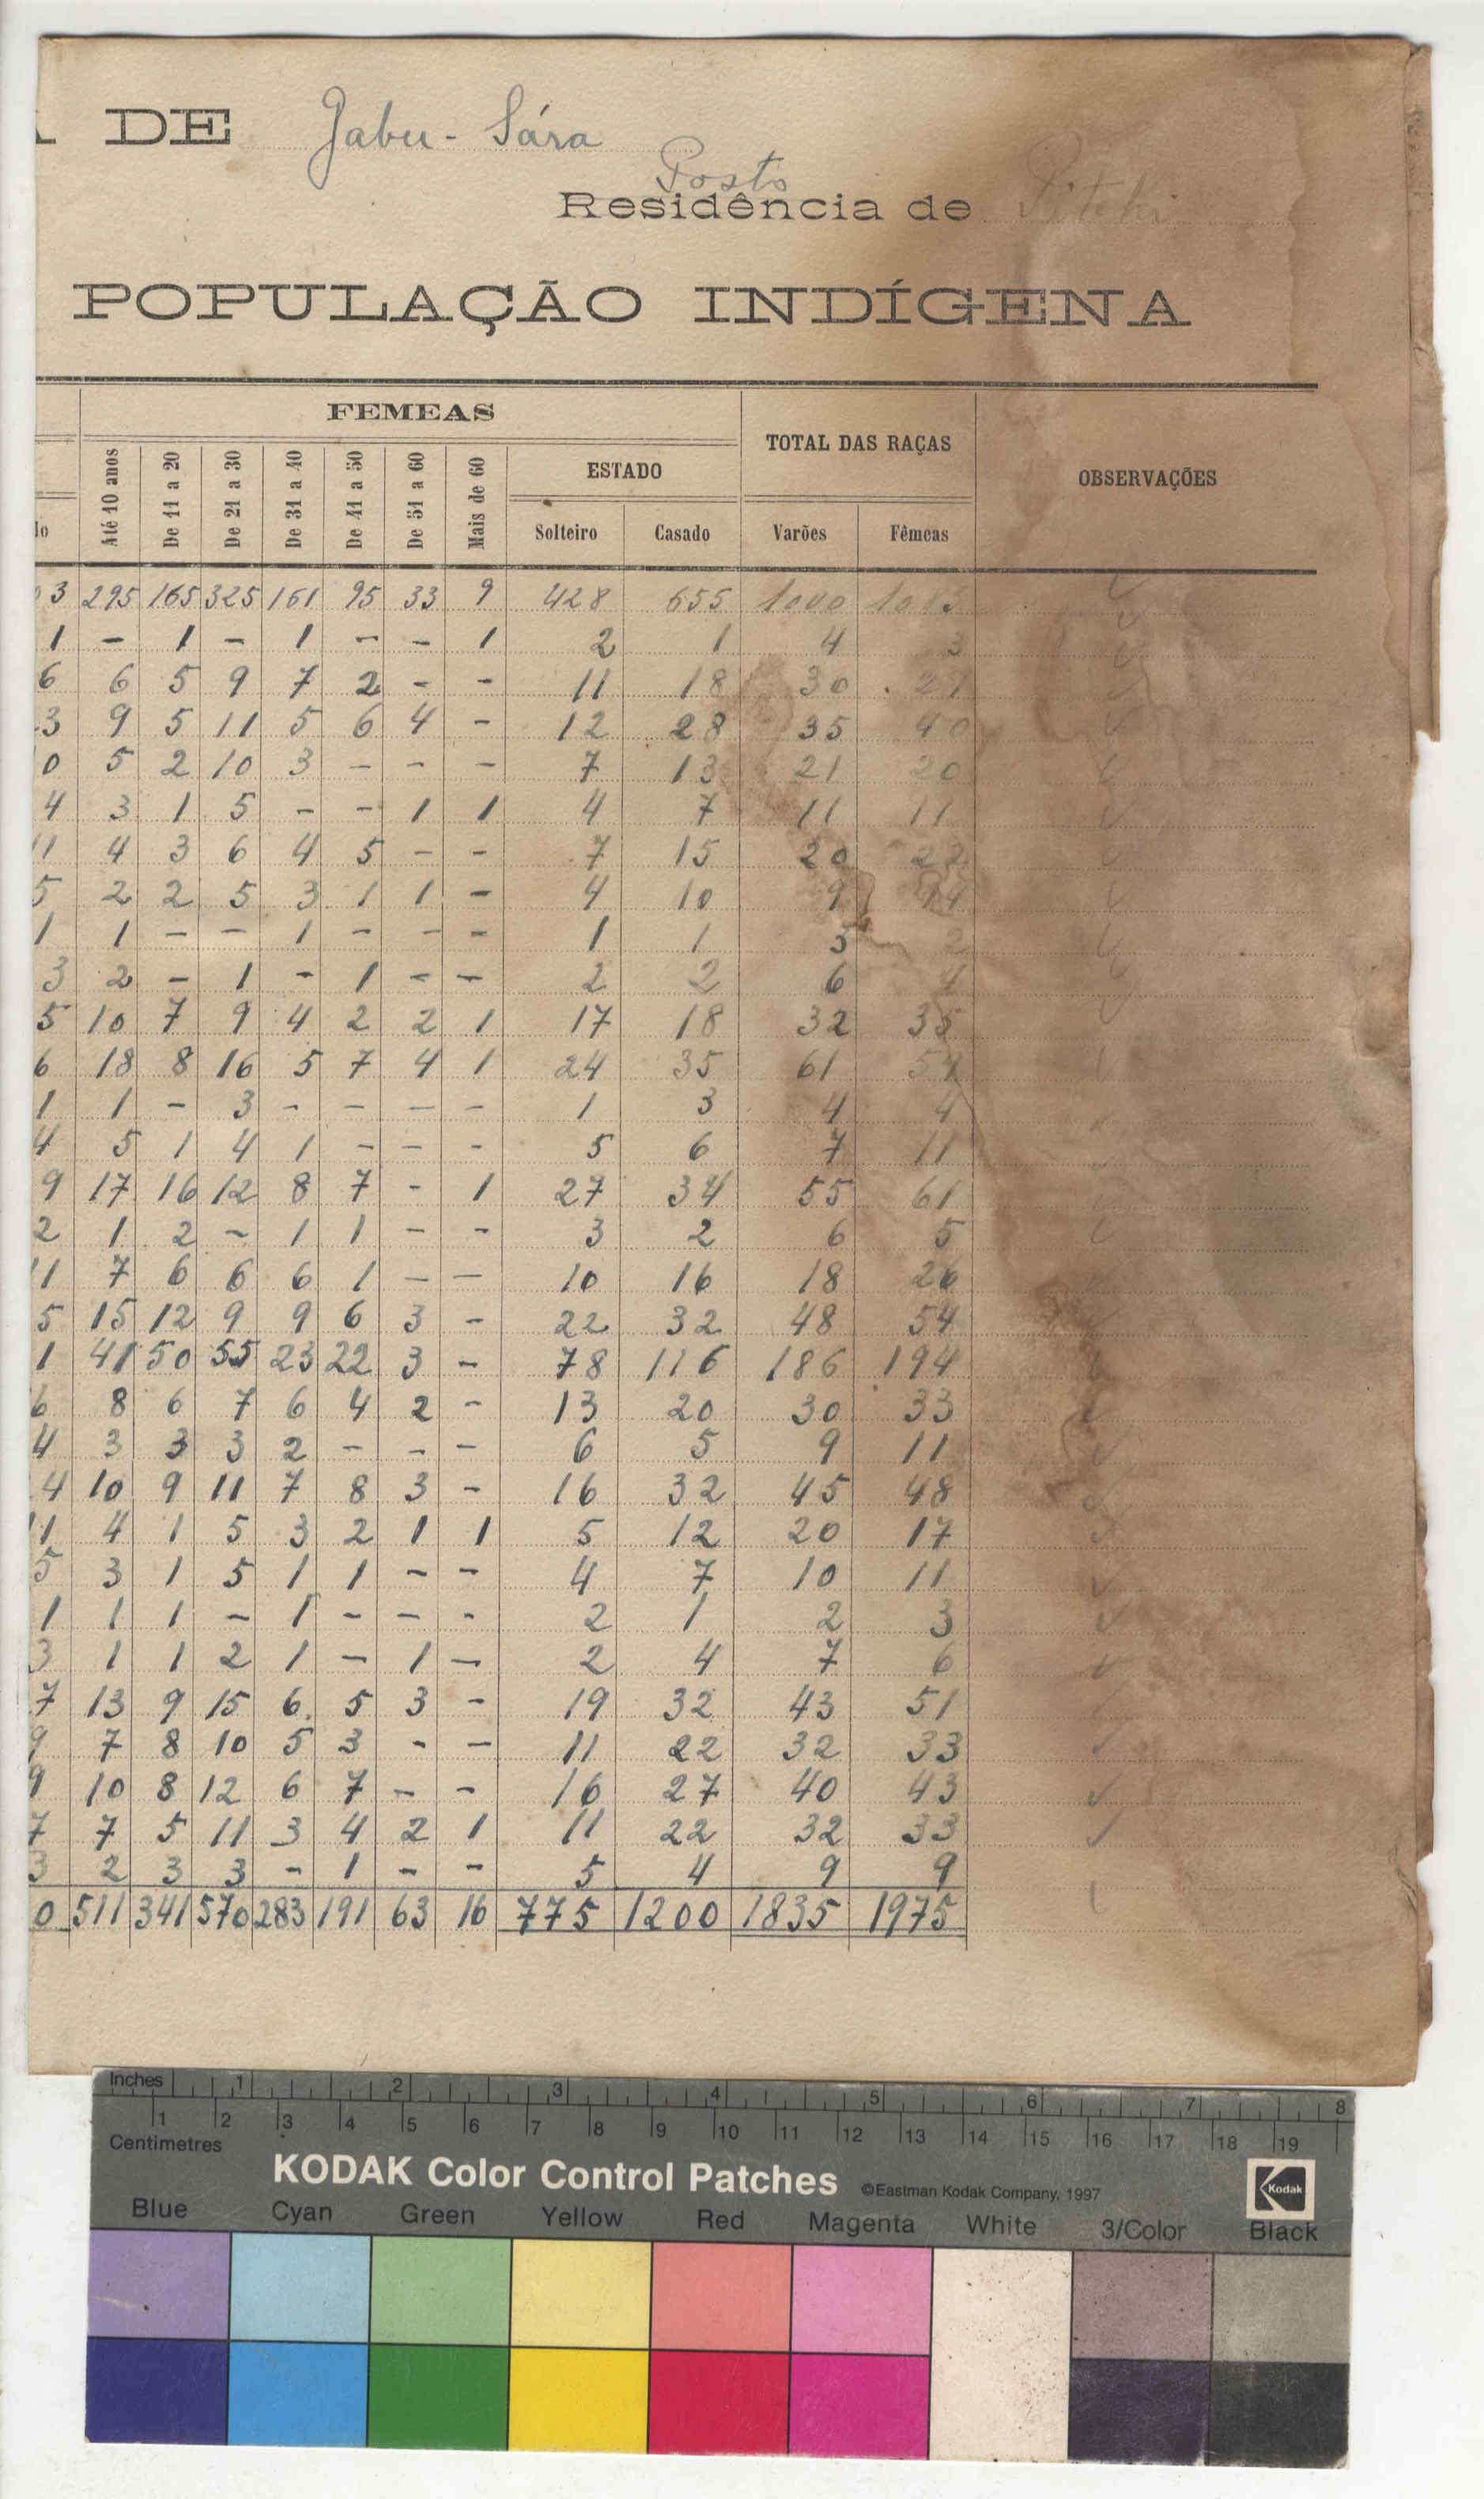 DE Gabu - Sára
Posto
Residência de Pitchi
POPULAÇÃO INDÍGENA
FEMEAS
TOTAL DAS RAÇAS
OBSERVAÇÕES
Até 10 anos De 11 a 20 De 21 a 30 De 31 a 40 De 41 a 50 De 51 a 60 Mais de 60 ESTADO
lo Solteiro Casado Varões Fêmeas
3 295 165 325 161 95 33 9 428 655 1000 1083
1 - 1 - 1 - - 1 2 1 4 3
6 6 5 9 7 2 - - 11 18 30 29
3 9 5 11 5 6 4 - 12 28 35 40
0 5 2 10 3 - - - 7 13 21 20
4 3 1 5 - - 1 1 4 7 11 11
11 4 3 6 4 5 - - 7 15 20 22
5 2 2 5 3 1 1 - 4 10 9 14
1 1 - - 1 - - - 1 1 3 2
3 2 - 1 - 1 - - 2 2 6 4
5 10 7 9 4 2 2 1 17 18 32 35
6 18 8 16 5 7 4 1 24 35 61 59
1 1 - 3 - - - - 1 3 4 4
4 5 1 4 1 - - - 5 6 7 11
9 17 16 12 8 7 - 1 27 34 55 61
2 1 2 - 1 1 - - 3 2 6 5
11 7 6 6 6 1 - - 10 16 18 26
5 15 12 9 9 6 3 - 22 32 48 54
1 41 50 55 23 22 3 - 78 116 186 194
6 8 6 7 6 4 2 - 13 20 30 33
4 3 3 3 2 - - - 6 5 9 11
4 10 9 11 7 8 3 - 16 32 45 48
11 4 1 5 3 2 1 1 5 12 20 17
5 3 1 5 1 1 - - 4 7 10 11
1 1 1 - 1 - - - 2 1 2 3
3 1 1 2 1 - 1 - 2 4 7 6
7 13 9 15 6 5 3 - 19 32 43 51
9 7 8 10 5 3 - - 11 22 32 33
9 10 8 12 6 7 - - 16 27 40 43
7 7 5 11 3 4 2 1 11 22 32 33
3 2 3 3 - 1 - - 5 4 9 9
0 511 341 570 283 191 63 16 775 1200 1835 1975
Inches 1 2 3 4 5 6 7 8
1 2 3 4 5 6 7 8 9 10 11 12 13 14 15 16 17 18 19
Centimetres
KODAK Color Control Patches ©Eastman Kodak Company, 1997 Kodak
Blue Cyan Green Yellow Red Magenta White 3/Color Black